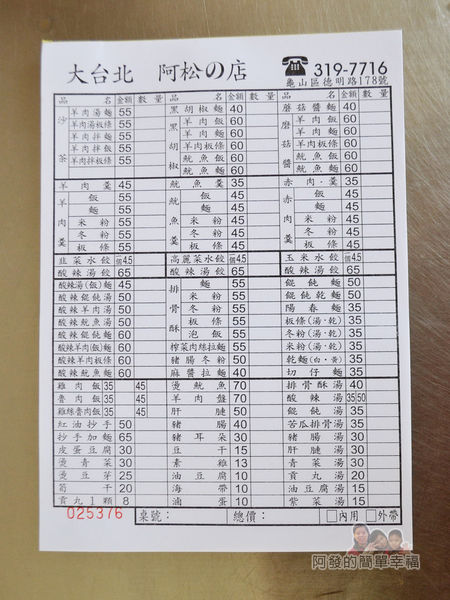 大台北 阿松の店
☎319-7716
龜山區德明路178號
品名 金額 數量 品名 金額 數量 品名 金額 數量
沙茶 羊肉湯麵 55 黑胡椒麵 40 蘑菇醬麵 40
羊肉湯板條 55 黑胡椒 羊肉飯 60 蘑菇醬 羊肉飯 60
羊肉拌麵 55 羊肉板條 60 羊肉板條 60
羊肉拌飯 55 魷魚飯 60 魷魚飯 60
羊肉拌板條 55 魷魚麵 60 魷魚麵 60
羊肉羹 45 魷魚羹 35 赤肉羹 35
羊肉羹 飯 55 魷魚羹 飯 45 赤肉羹 飯 45
麵 55 麵 45 麵 45
米粉 55 米粉 45 米粉 45
冬粉 55 冬粉 45 冬粉 45
板條 55 板條 45 板條 45
韭菜水餃 個4.5 高麗菜水餃 個4.5 玉米水餃 個4.5
酸辣湯餃 65 酸辣湯餃 65 酸辣湯餃 65
酸辣湯(飯)麵 45 排骨酥 麵 55 餛飩麵 50
酸辣餛飩湯 50 米粉 55 餛飩乾麵 50
酸辣羊肉湯 50 冬粉 55 陽春麵 35
酸辣魷魚湯 50 板條 55 板條(湯·乾) 35
酸辣餛飩麵 60 泡飯 55 冬粉(湯·乾) 35
酸辣羊肉(飯)麵 60 榨菜肉絲拉麵 55 米粉(湯·乾) 35
酸辣羊肉板條 60 豬腸冬粉 50 乾麵(白·黃) 35
酸辣魷魚麵 60 麻醬拉麵 40 切仔麵 35
雞肉飯 35 45 燙魷魚 70 排骨酥湯 40
魯肉飯 35 45 羊肉盤 70 酸辣湯 35 50
雞絲魯肉飯 35 45 肝腱 50 餛飩湯 35
紅油抄手 50 豬腸 40 苦瓜排骨湯 35
抄手加麵 65 豬耳朵 30 豬腸湯 30
皮蛋豆腐 30 豆干 15 肝腱湯 30
燙青菜 30 素雞 13 青菜湯 30
燙豆芽 25 油豆腐 10 貢丸湯 20
筍干 20 海帶 10 油豆腐湯 15
貢丸1顆 8 滷蛋 10 紫菜湯 15
025376 桌號: 總價: □內用 □外帶
阿發的簡單幸福